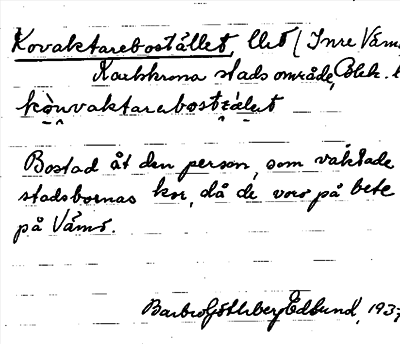 Kovaktarebostället, llht (Inre Vämö
Karlskrona stads område, Blek. l
kònvaktarebostèlet
Bostad åt den person, som vaktade
stadsbornas kor, då de voro på bete
på Vämö.
Barbro Götlberg Edlund, 1937